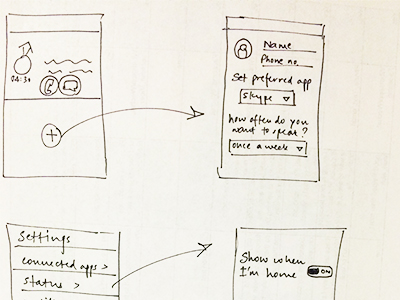 04:30
+
Name
Phone no.
Set preferred app
Skype
how often do you
want to speak?
once a week
Settings
connected apps >
status >
Show when
I'm home ON